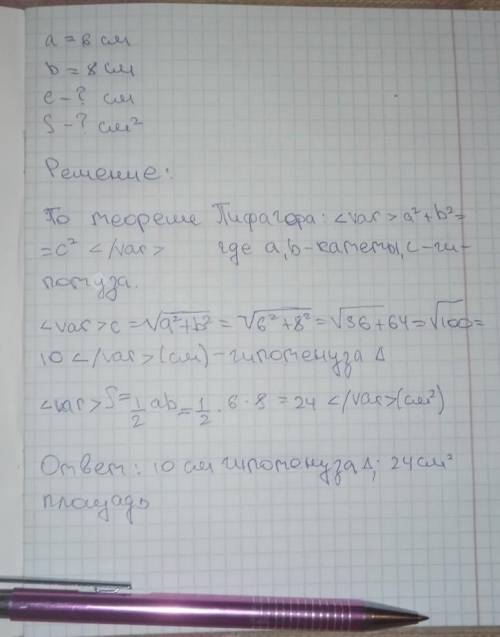 a = 6 см
b = 8 см
c - ? см
S - ? см²
Решение:
По теореме Пифагора: <var> a² + b² =
= c² </var> где a, b - катеты, c - ги-
потуза.
<var> c = √a² + b² = √6² + 8² = √36 + 64 = √100 =
10 </var> (см) - гипотенуза Δ
<var> S = 1/2 ab = 1/2 · 6 · 8 = 24 </var> (см²)
Ответ: 10 см гипотонуза Δ; 24 см²
площадь